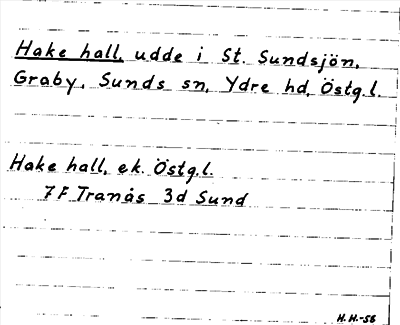 Hake hall, udde i St. Sundsjön,
Graby, Sunds sn, Ydre hd, Östg.l.
Hake hall, ek. Östg.l.
7F Tranås 3d Sund
H.H.-56